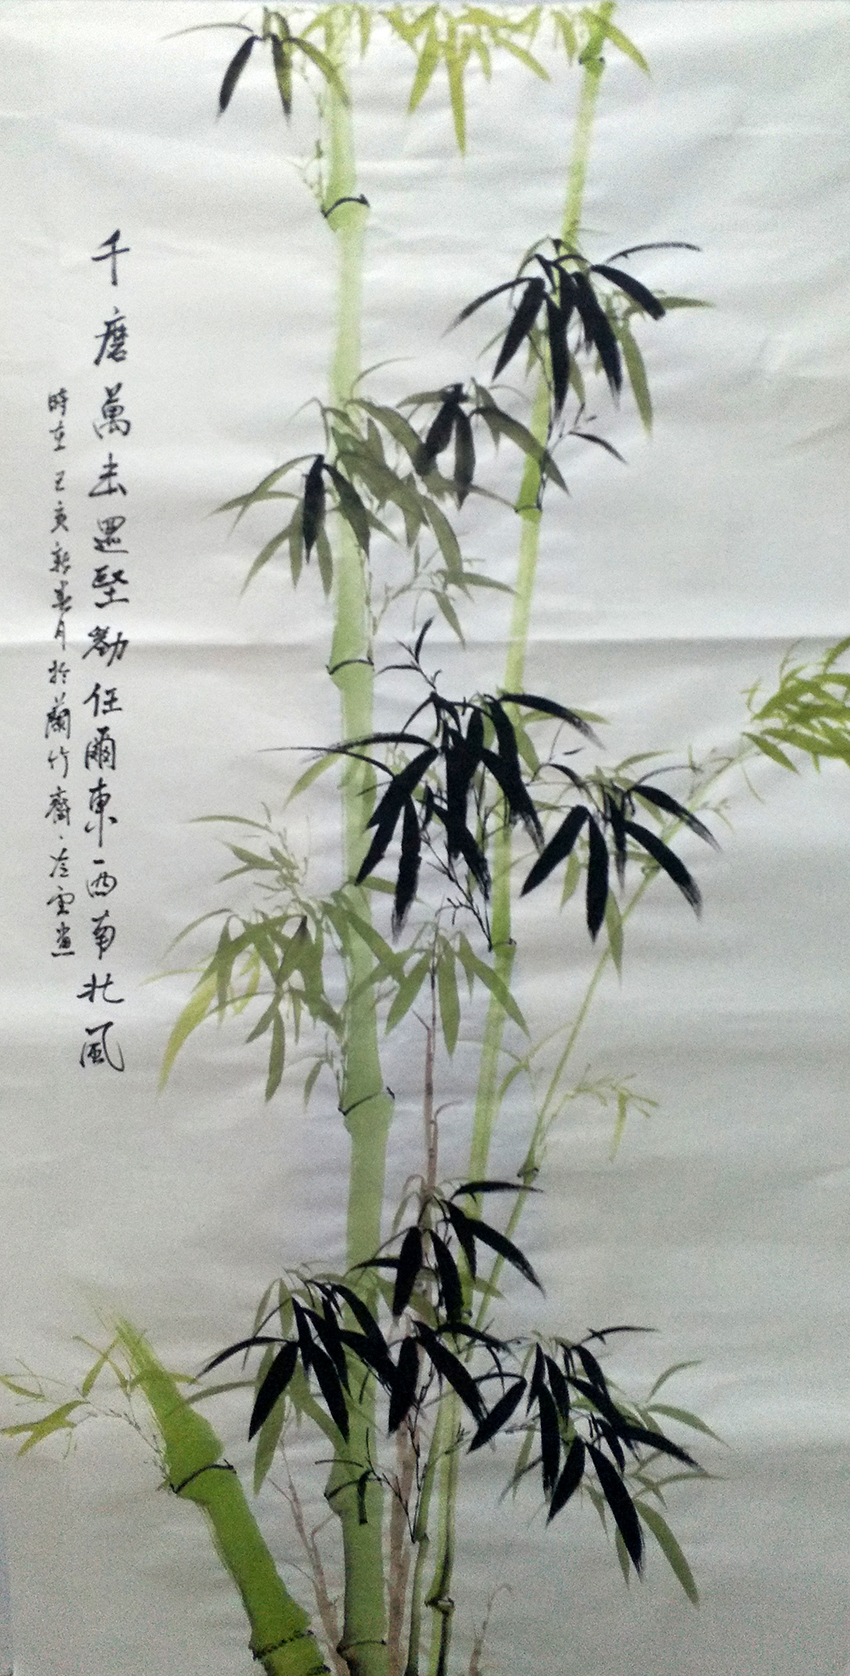 千磨萬击還堅勁任爾東西南北風
時在己亥新春月於蘭竹齋冷雲畫